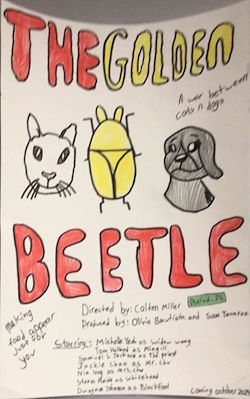 THE GOLDEN
A war between
cats n dogs
BEETLE
Making
food appear
just for
you
Directed by: Colten Miller
Produced by: Olivia Bautista and Sam
Starring:: Michelle Yeoh as widow wang
Tom Holland as
Samuel L Jackson as The priest
Jackie Chan as Mr. chu
Nia long as Mrs. chu
Storm Reide as Whitehead
Dwayne Johnson as Blackfoot
Coming october